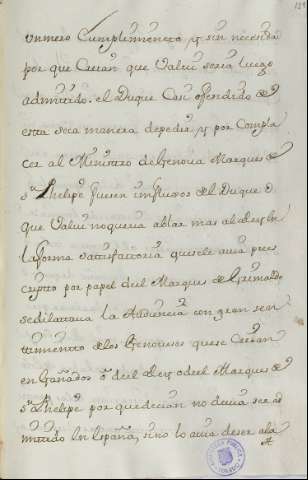 un mero Cumplimiento, y sin necesidad
por que Creian que Valui seria luego
admitido. el Duque Casi ofendido de
esta seca manera de pedir, y por Compla
cer al Ministro de Genova Marques de
Sn Phelipe, fueron influxos del Duque
que Valui no queria ablar mas al Rey en
la forma satisfactoria que se le avia pres
cripto por papel del Marques de Grimaldo
se dilatava la Audiencia con gran sen
timiento de los Genoveses que se Creian
engañados ô del Rey, o del Marques de
Sn Phelipe por que decian no devia ser ad
mitido en España, sino lo avia de ser a la